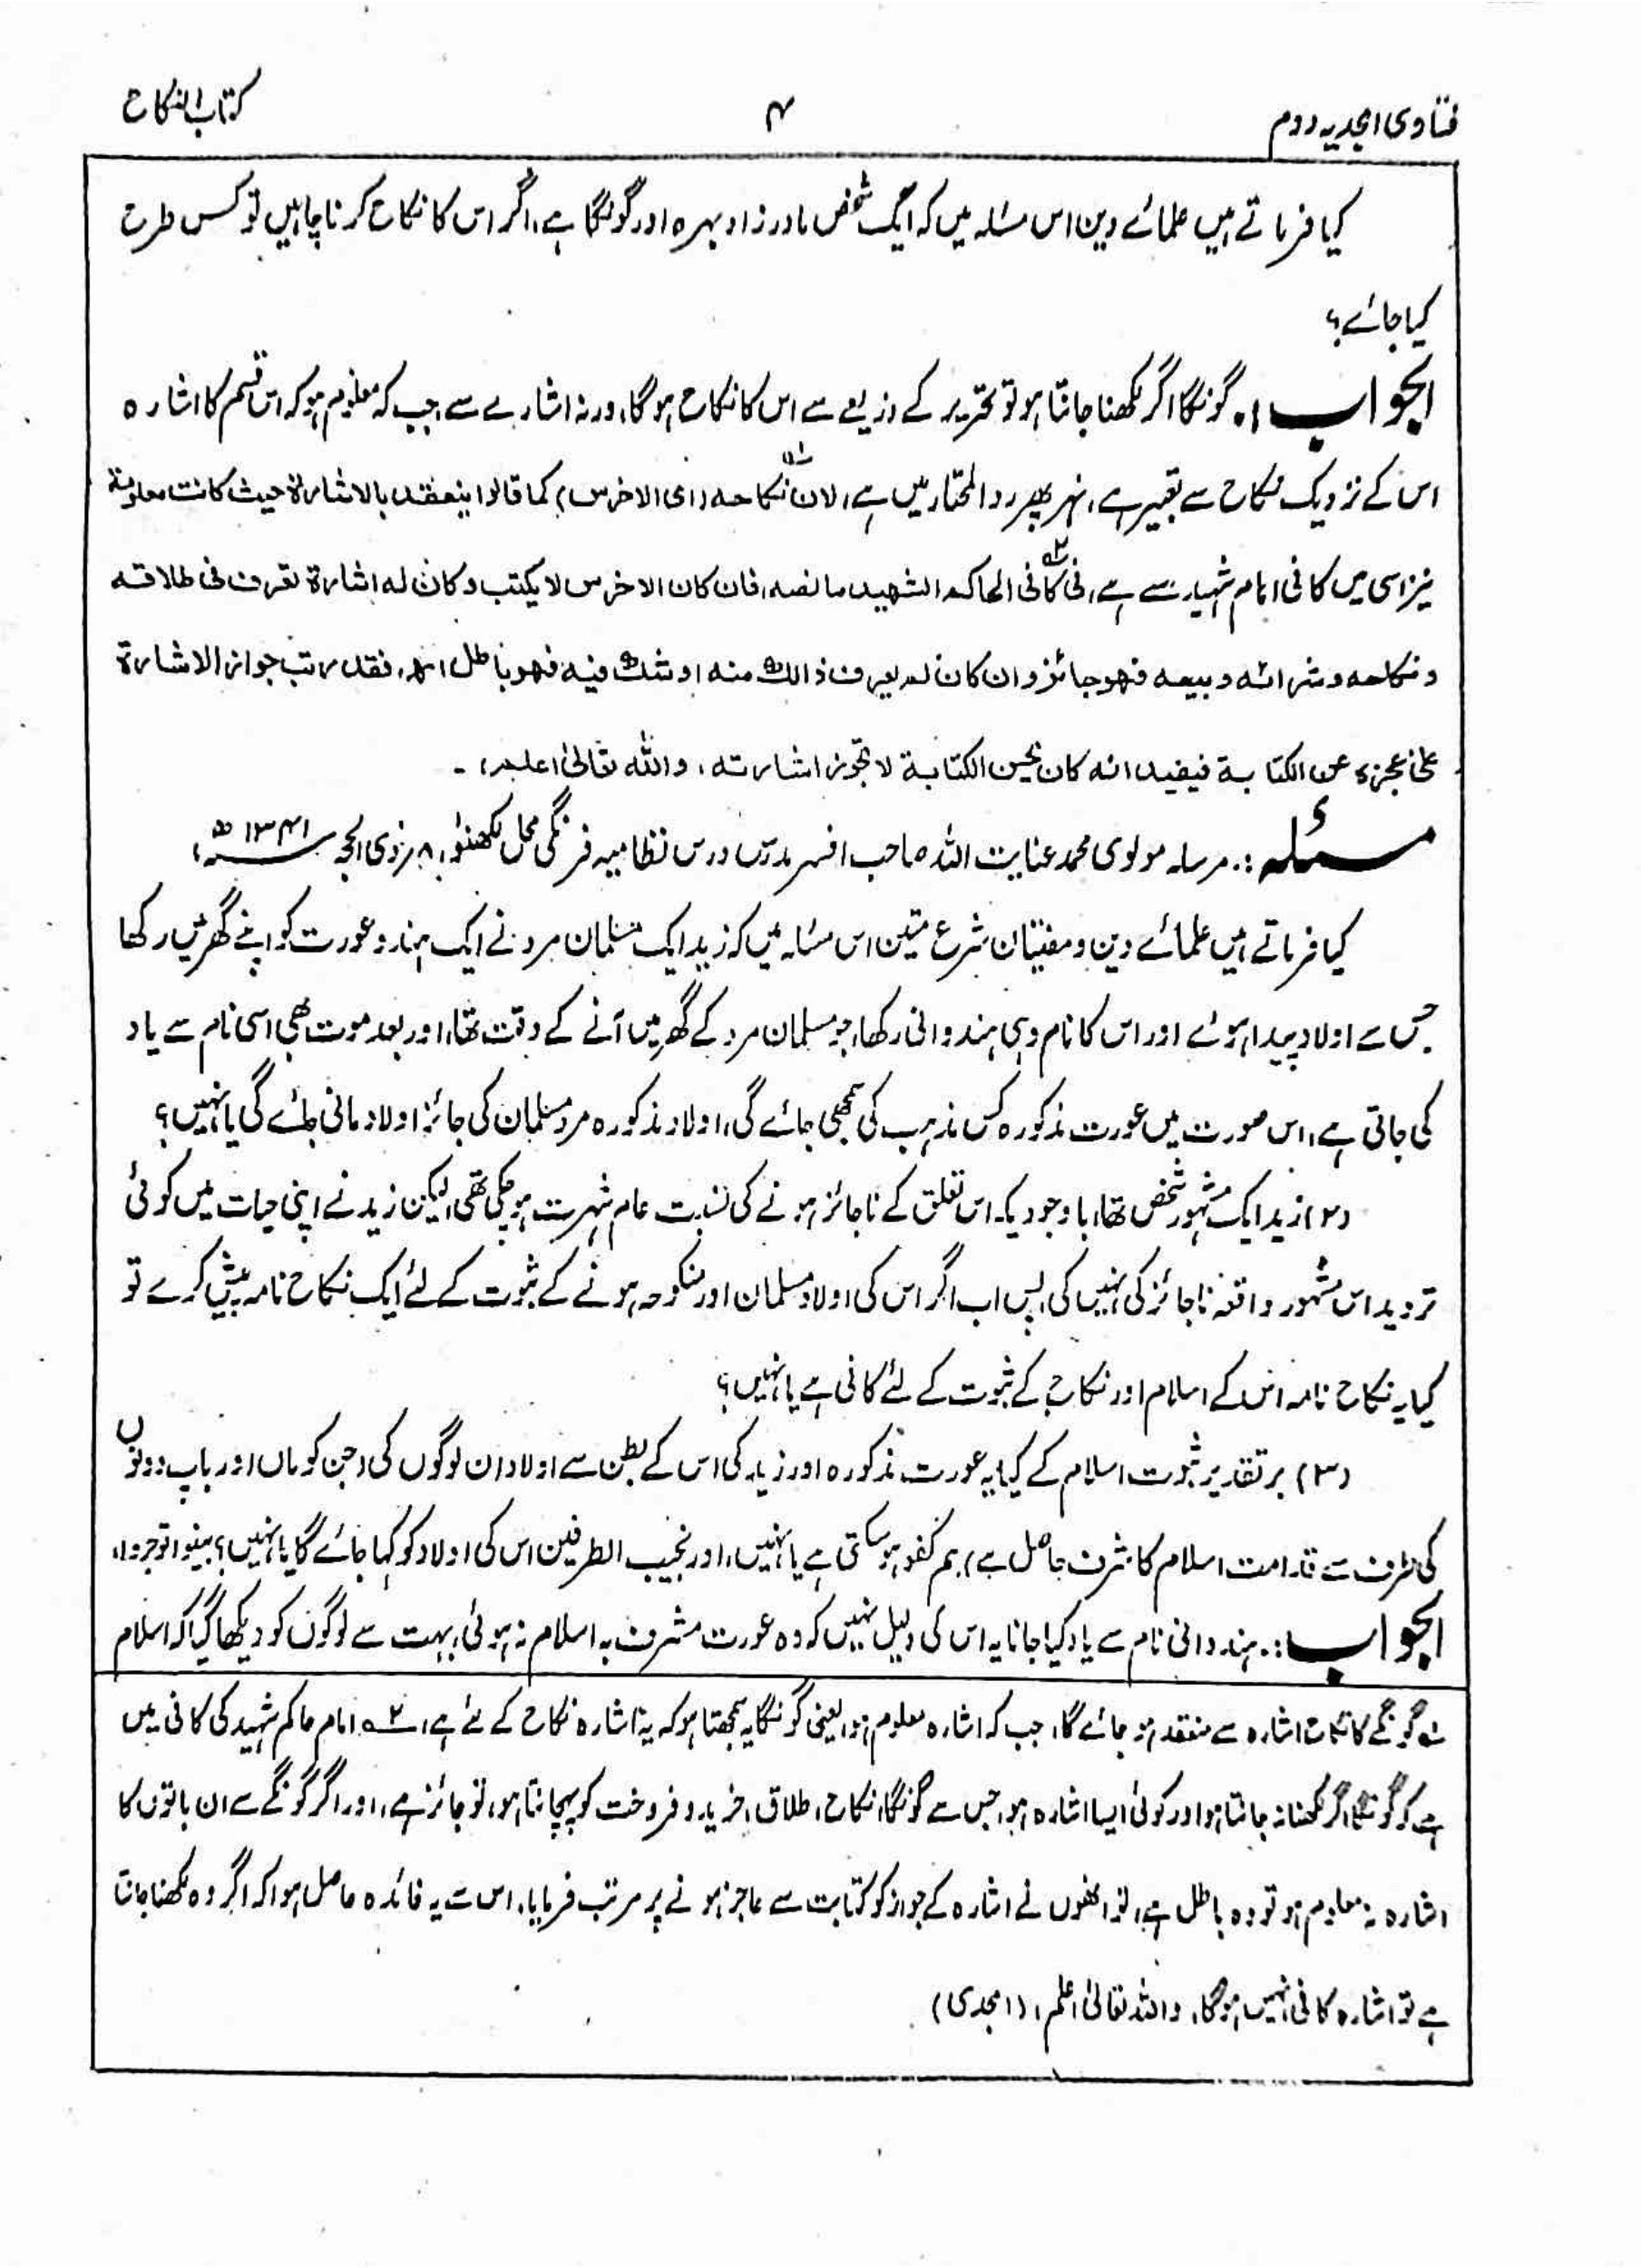 فتاوی امجدیہ دوم
۴
کتاب النکاح
کیا فرماتے ہیں علمائے دین اس مسئلہ میں کہ ایک شخص مادر زاد بہرہ اور گونگا ہے، اگر اس کا نکاح کرنا چاہیں تو کس طرح
کیا جائے؟
الجواب :۔ گونگا اگر لکھنا جانتا ہو تو تحریر کے ذریعے سے اس کا نکاح ہوگا، ورنہ اشارے سے جب کہ معلوم ہو کہ اس قسم کا اشارہ
اس کے نزدیک نکاح سے تعبیر ہے، نہر پھر رد المحتار میں ہے، لان نکاحہ (ای الاخرس) کما قالوا ینعقد بالاشارۃ حیث کانت معلومۃ
نیز اسی میں کافی امام شہید سے ہے، فی کافی الحاکم الشھید ما نصہ، فان کان الاخرس لا یکتب و کان لہ اشارۃ تعرف فی طلاقہ
و نکاحہ و شرائہ و بیعہ فھو جائز و ان کان لم یعرف ذالک منہ او شک فیہ فھو باطل اھ، فقد رتب جواز الاشارۃ
علی عجزہ عن الکتابۃ فیفید انہ کان یحسن الکتابۃ لا تجوز اشارتہ، واللہ تعالیٰ اعلم، ۔
مسئلہ :۔ مرسلہ مولوی محمد عنایت اللہ صاحب افسر مدرس درس نظامیہ فرنگی محل لکھنؤ، ۸؍ ذی الحجہ ۱۳۴۱ھ؁،
کیا فرماتے ہیں علمائے دین و مفتیان شرع متین اس مسئلہ میں کہ زید ایک مسلمان مرد نے ایک ہندو عورت کو اپنے گھر میں رکھا
جس سے اولاد پیدا ہوئے اور اس کا نام وہی ہندوانی رکھا، جو مسلمان مرد کے گھر میں آنے کے وقت تھا، اور بعد موت بھی اسی نام سے یاد
کی جاتی ہے، اس صورت میں عورت مذکورہ کس مذہب کی سمجھی جائے گی، اولاد مذکورہ مرد مسلمان کی جائز اولاد مانی جائے گی یا نہیں؟
(۲) زید ایک مشہور شخص تھا، باوجودیکہ اس تعلق کے ناجائز ہونے کی نسبت عام شہرت ہو چکی تھی، لیکن زید نے اپنی حیات میں کوئی
تردید اس مشہور واقعہ ناجائز کی نہیں کی، پس اب اگر اس کی اولاد مسلمان اور منکوحہ ہونے کے ثبوت کے لئے ایک نکاح نامہ پیش کرے تو
کیا یہ نکاح نامہ اس کے اسلام اور نکاح کے ثبوت کے لئے کافی ہے یا نہیں؟
(۳) بر تقدیر ثبوت اسلام کے کیا یہ عورت مذکورہ اور زید کی اس کے بطن سے اولاد ان لوگوں کی (جن کو ماں اور باپ دونوں
کی طرف سے قدامت اسلام کا شرف حاصل ہے) ہم کفو ہو سکتی ہے یا نہیں، اور نجیب الطرفین اس کی اولاد کو کہا جائے گا یا نہیں؟ بینوا توجروا،
الجواب :۔ ہندوانی نام سے یاد کیا جانا یہ اس کی دلیل نہیں کہ وہ عورت مشرف بہ اسلام نہ ہوئی، بہت سے لوگوں کو دیکھا گیا کہ اسلام
؂۱ گونگے کا نکاح اشارہ سے منعقد ہو جائے گا، جب کہ اشارہ معلوم ہو، یعنی گونگا یہ سمجھتا ہو کہ یہ اشارہ نکاح کے لئے ہے، ؂۲ امام حاکم شہید کی کافی میں
ہے کہ گونگا اگر لکھنا نہ جانتا ہو اور کوئی ایسا اشارہ ہو، جس سے گونگا، نکاح، طلاق، خرید و فروخت کو پہچانتا ہو، تو جائز ہے، اور اگر گونگے سے ان باتوں کا
اشارہ نہ معلوم ہو تو وہ باطل ہے، تو انھوں نے اشارہ کے جواز کو کتابت سے عاجز ہونے پر مرتب فرمایا، اس سے یہ فائدہ حاصل ہوا کہ اگر وہ لکھنا جانتا
ہے تو اشارہ کافی نہیں ہوگا، واللہ تعالیٰ اعلم، (امجدی)